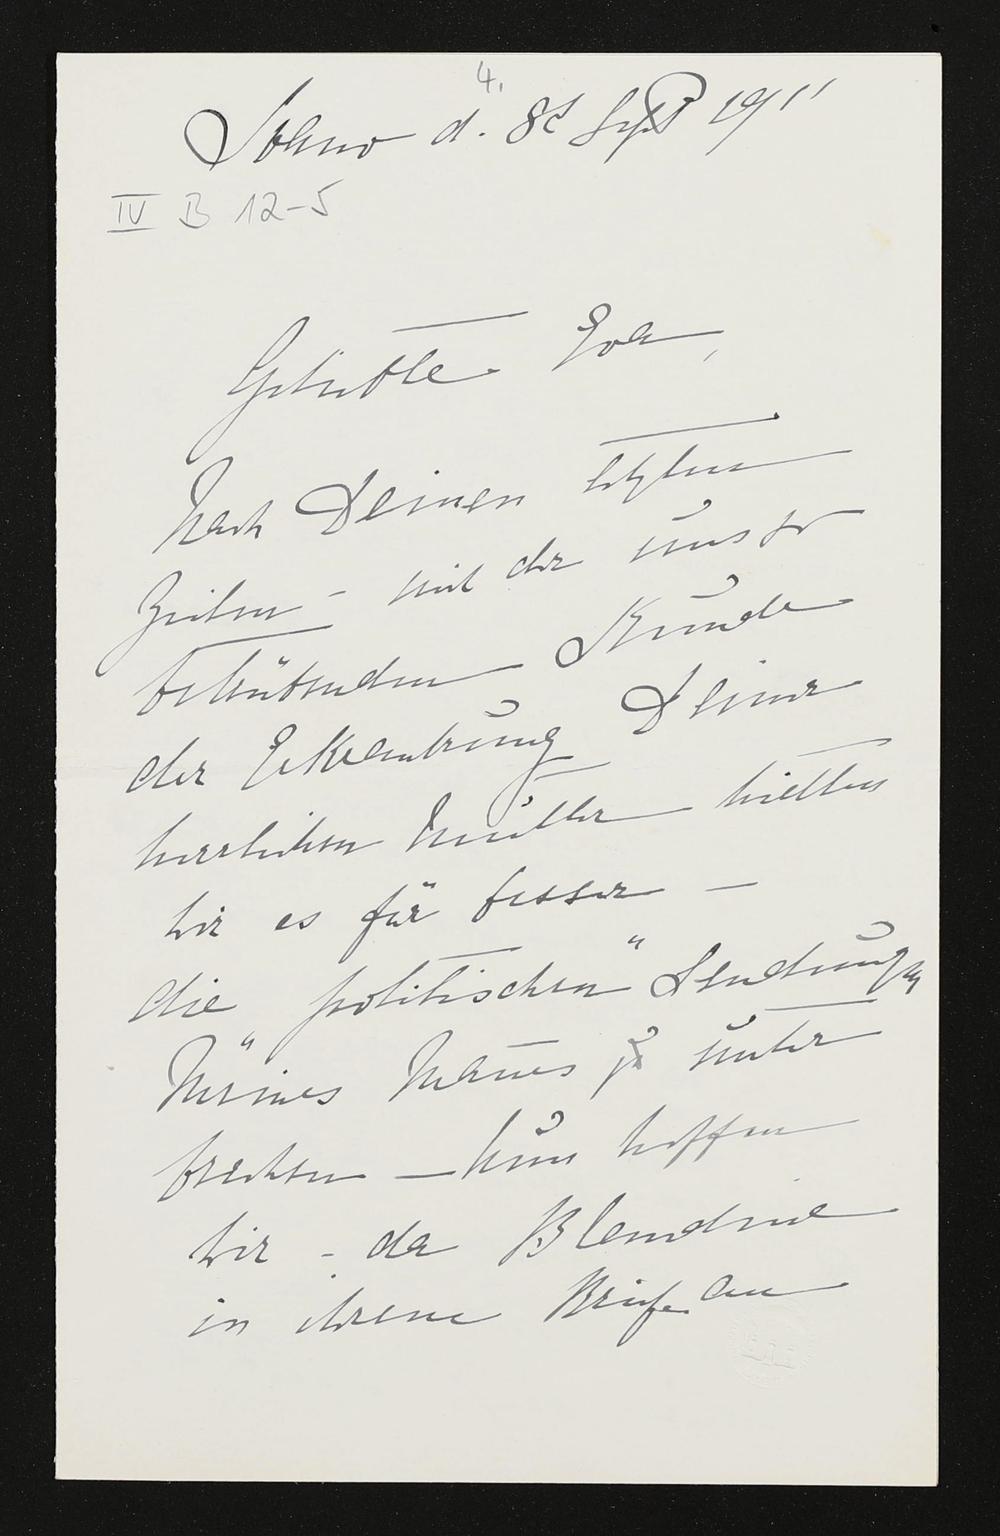 4.
Locarno d. 8t Sept 1911
IV B 12-5
Geliebte Eva,
Nach Deinen letzten
Zeilen - mit der uns so
betrübenden Kunde
der Erkrankung Deiner
herrlichen Mutter hielten
wir es für besser -
die "politischen" Sendungen
Meines Mannes zu unter
brechen - Nun hoffen
wir - da Blandine
in ihrem Briefe an